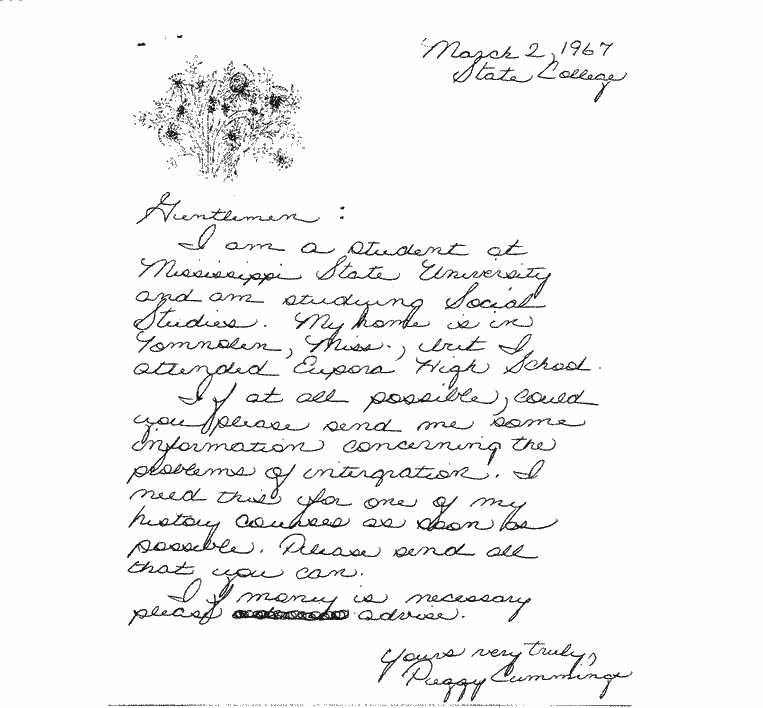 March 2, 1967
State College
Gentlemen :
I am a student at
Mississippi State University
and am studying Social
Studies. My home is in
Tomnolen, Miss., but I
attended Eupora High School.
If at all possible, could
you please send me some
information concerning the
problems of intergration. I
need this for one of my
history courses as soon as
possible. Please send all
that you can.
If money is necessary
please advise.
Yours very truly,
Peggy Cummings